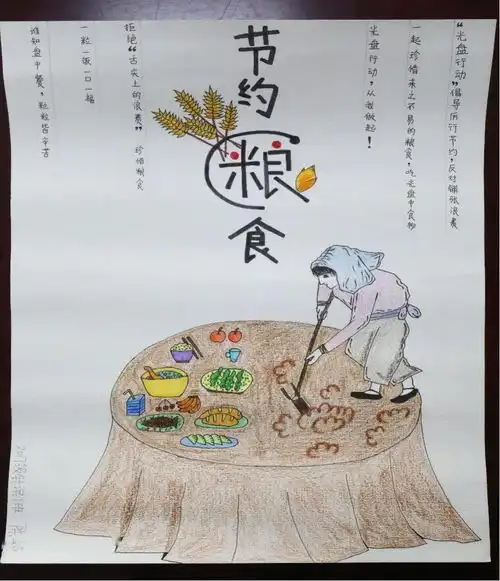 节约粮食
“光盘行动”倡导厉行节约，反对铺张浪费
一起珍惜来之不易的粮食，吃光盘中食物
光盘行动，从我做起！
拒绝“舌尖上的浪费” 珍惜粮食
一粒一饭一口一福
谁知盘中餐，粒粒皆辛苦